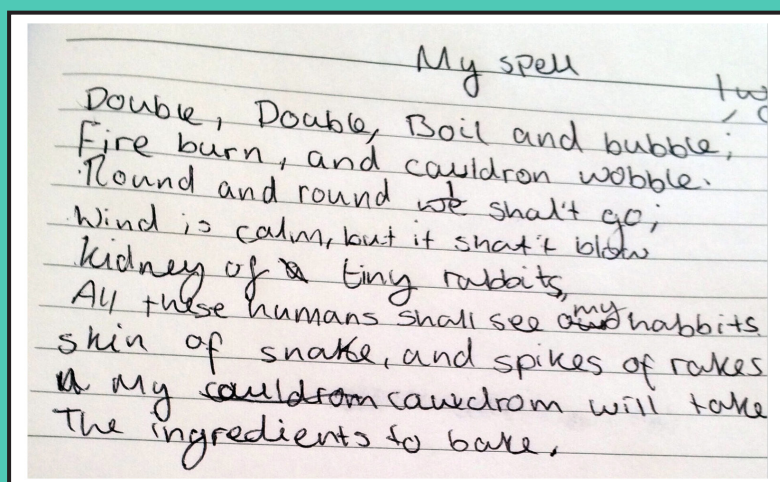 My spell
Double, Double, Boil and bubble;
Fire burn, and cauldron wobble.
Round and round we shal't go;
Wind is calm, but it shat't blow
kidney of tiny rabbits,
All these humans shall see my habbits.
skin of snake, and spikes of rakes
My cauldrom caukdrom will take
The ingredients to bake.